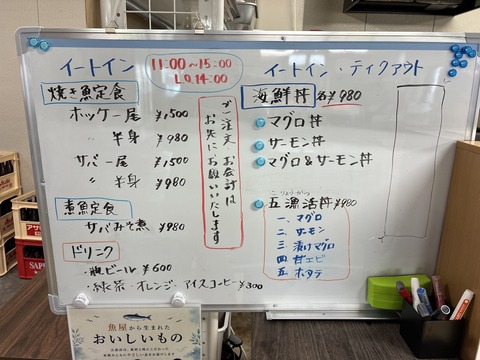 イートイン
11:00〜15:00
L.O.14:00
焼き魚定食
ホッケ一尾 ¥1500
〃 半身 ¥980
サバ一尾 ¥1500
〃 半身 ¥980
煮魚定食
サバみそ煮 ¥980
ドリンク
・瓶ビール ¥600
・緑茶・オレンジ・アイスコーヒー ¥300
ご注文、お会計は
お先にお願いいたします
イートイン・テイクアウト
海鮮丼 各¥980
マグロ丼
サーモン丼
マグロ&サーモン丼
ごりょうかつ
五漁活丼 ¥980
一、マグロ
二、サーモン
三、漬けマグロ
四 甘エビ
五 ホタテ
魚屋から生まれた
おいしいもの